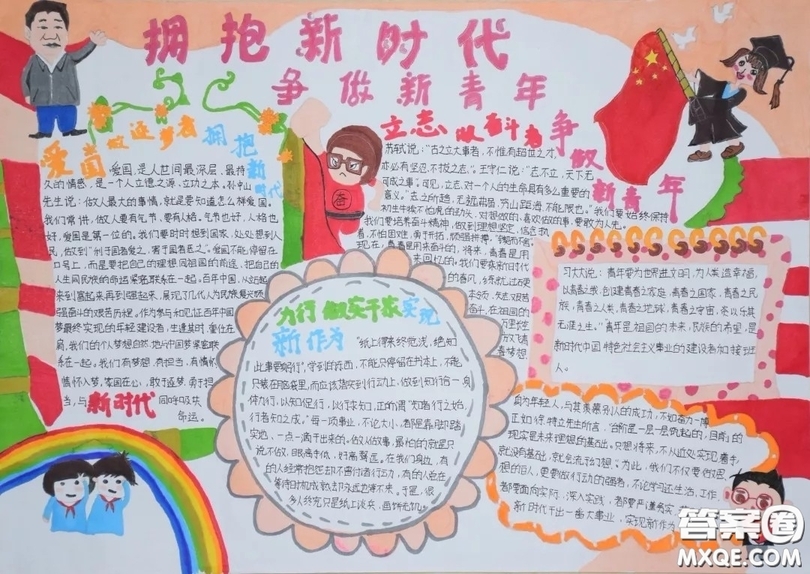 拥抱新时代
争做新青年
爱国做逐梦者拥抱新时代
爱国,是人世间最深层、最持
久的情感,是一个人立德之源、立功之本。孙中山
先生说:"做人最大的事情,就是要知道怎么样爱国。"
我们常讲,做人要有气节、要有人格。气节也好,人格也
好,爱国是第一位的。我们要时时想到国家,处处想到人
民,做到"利于国者爱之,害于国者恶之"。爱国不能停留在
口号上,而是要把自己的理想同祖国的前途、把自己的
人生同民族的命运紧密联系在一起。百年中国,从站起
来到富起来再到强起来,展现了几代人为民族复兴顽
强奋斗的艰苦历程。作为参与和见证百年中国
梦最终实现的年轻建设者,生逢其时,重任在
肩,我们的个人梦想自然
在一起。我们有梦想、有担当,有情怀
情怀人梦,家国在心,敢于逐梦、勇于
担当,与新时代同呼吸共
命运。
立志做奋斗者争做新青年
苏轼说:"古之立大事者,不惟有超世之才,
亦必有坚忍不拔之志。"王守仁说:"志不立,天下无
可成之事。"可见,立志对一个人的生命具有多么重要的
意义。"志之所趋,无远弗届,穷山距海,不能限也。"我们要始终保持
初生牛犊不怕虎的劲头,对想做的、喜欢做的事,要敢为人先。
我们要培养奋斗精神,做到理想坚定,信念执
着,不怕困难,勇于开拓,顽强拼搏,
现在,青春是用来奋斗的;将来,青春是用
来回忆的。我们要乘新时代
的春风,
在祖国的
万里长空
放飞青
春梦想
习大大说:青年要为世界进文明,为人类造幸福,
以青春之我,创建青春之家庭,青春之国家,青春之民
族,青春之人类,青春之地球,青春之宇宙,资以乐其
无涯之生。"青年是祖国的未来,民族的希望,是
新时代中国特色社会主义事业的建设者和接班
人。
力行做实干家实现
新作为
"纸上得来终觉浅,绝知
此事要躬行。"学到的东西,不能只停留在书本上,不能
只装在脑袋里,而应该落实到行动上,做到知行合一,身
体力行,以知促行,以行求知,正所谓"知者行之始,
行者知之成。"每一项事业,不论大小,都是靠脚踏
实地、一点一滴干出来的。做人做事,最怕的就是只
说不做,眼高手低,好高骛远。在我们身边,有
的人经常抱怨却不曾付诸行动,有的人总在
等待时机成熟却永远也等不来。于是,很
多人终究只是纸上谈兵、画饼充饥。
身为年轻人,与其羡慕别人的成功,不如奋力一搏,
正如徐特立先生所言,"台阶是一层一层筑起的,目前的
现实是未来理想的基础。只想将来,不从近处现实着手,
就没有基础,就会流于幻想。"为此,我们不仅要做思
想的巨人,更要做行动的强者,不论学习还是生活、工作
都要面向实际、深入实践,
新时代干出一番大事业,实现新作为
奋
答案圈
MXQE.COM